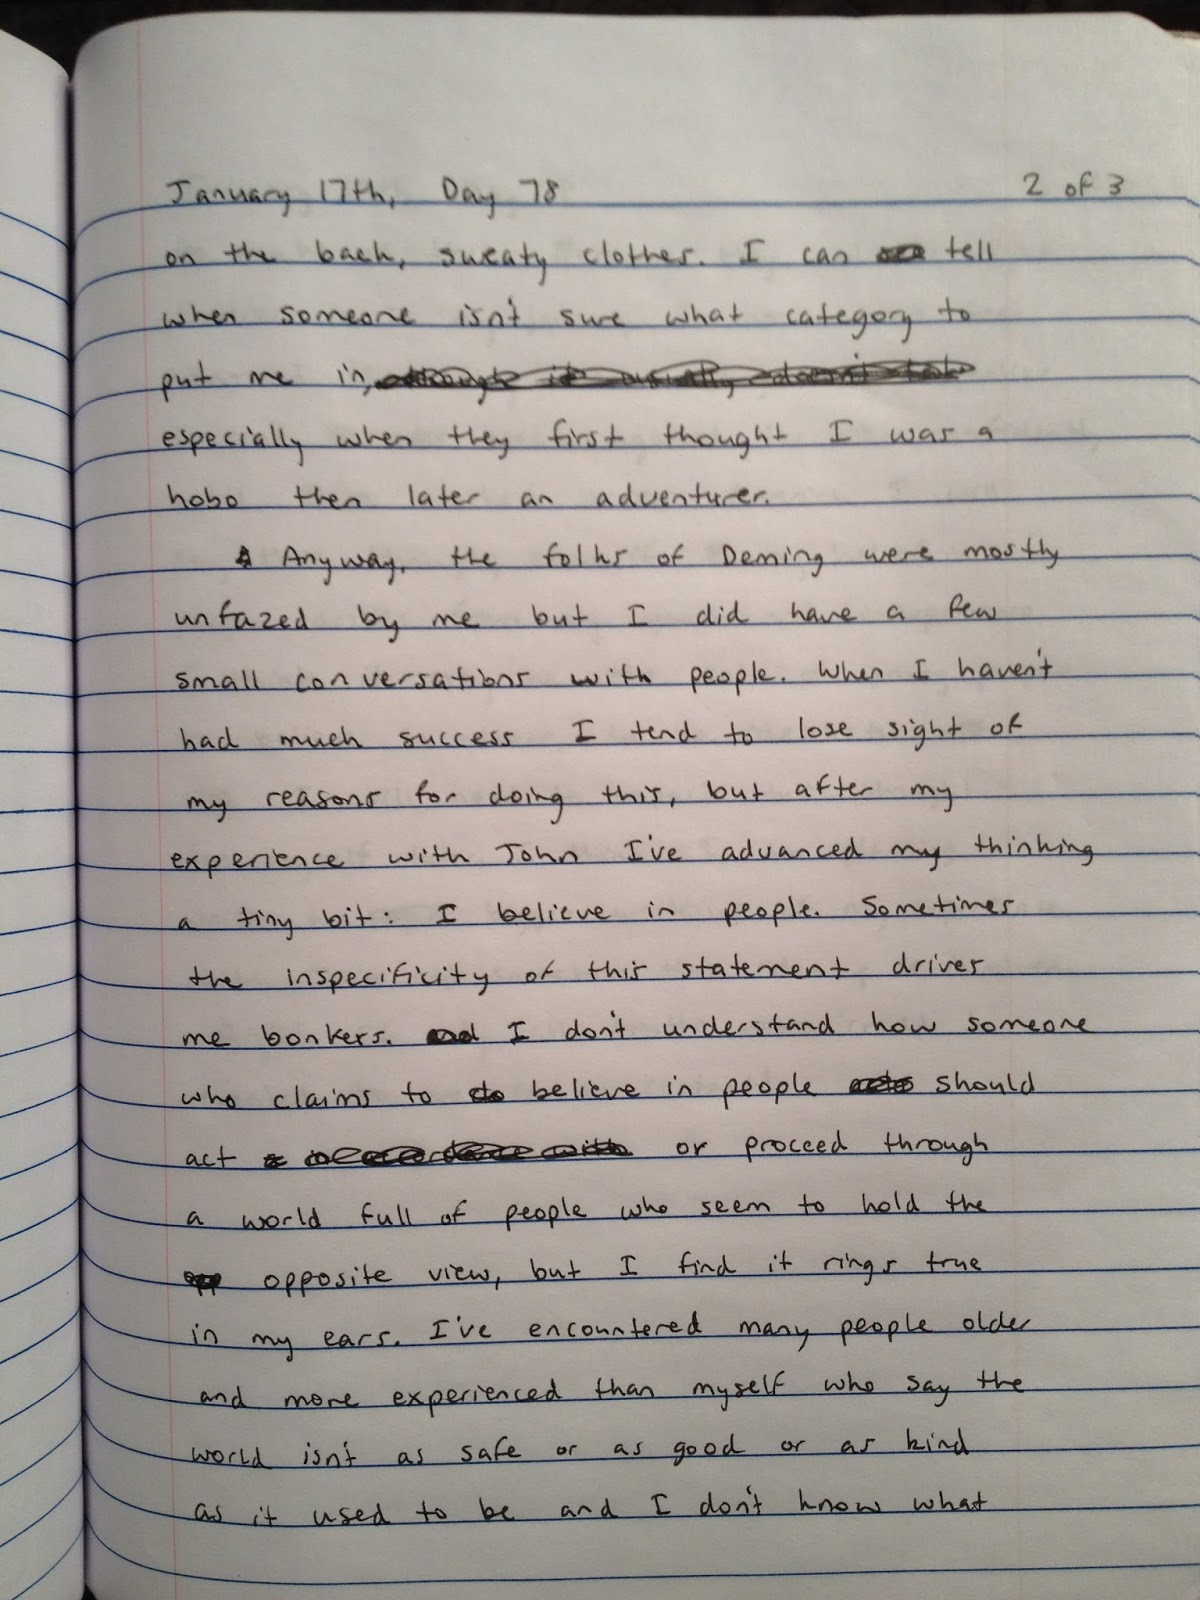 January 17th, Day 78
2 of 3
on the back, sweaty clothes. I can tell
when someone isn't sure what category to
put me in,
especially when they first thought I was a
hobo then later an adventurer.
Anyway, the folks of Deming were mostly
unfazed by me but I did have a few
small conversations with people. When I haven't
had much success I tend to lose sight of
my reasons for doing this, but after my
experience with John I've advanced my thinking
a tiny bit: I believe in people. Sometimes
the inspecificity of this statement drives
me bonkers. and I don't understand how someone
who claims to do believe in people should
act or proceed through
a world full of people who seem to hold the
opposite view, but I find it rings true
in my ears. I've encountered many people older
and more experienced than myself who say the
world isn't as safe or as good or as kind
as it used to be and I don't know what